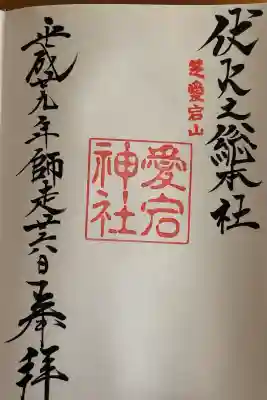 伏火之總本社
芝愛宕山
愛宕
神社
平成廿九年師走廿六日奉拜